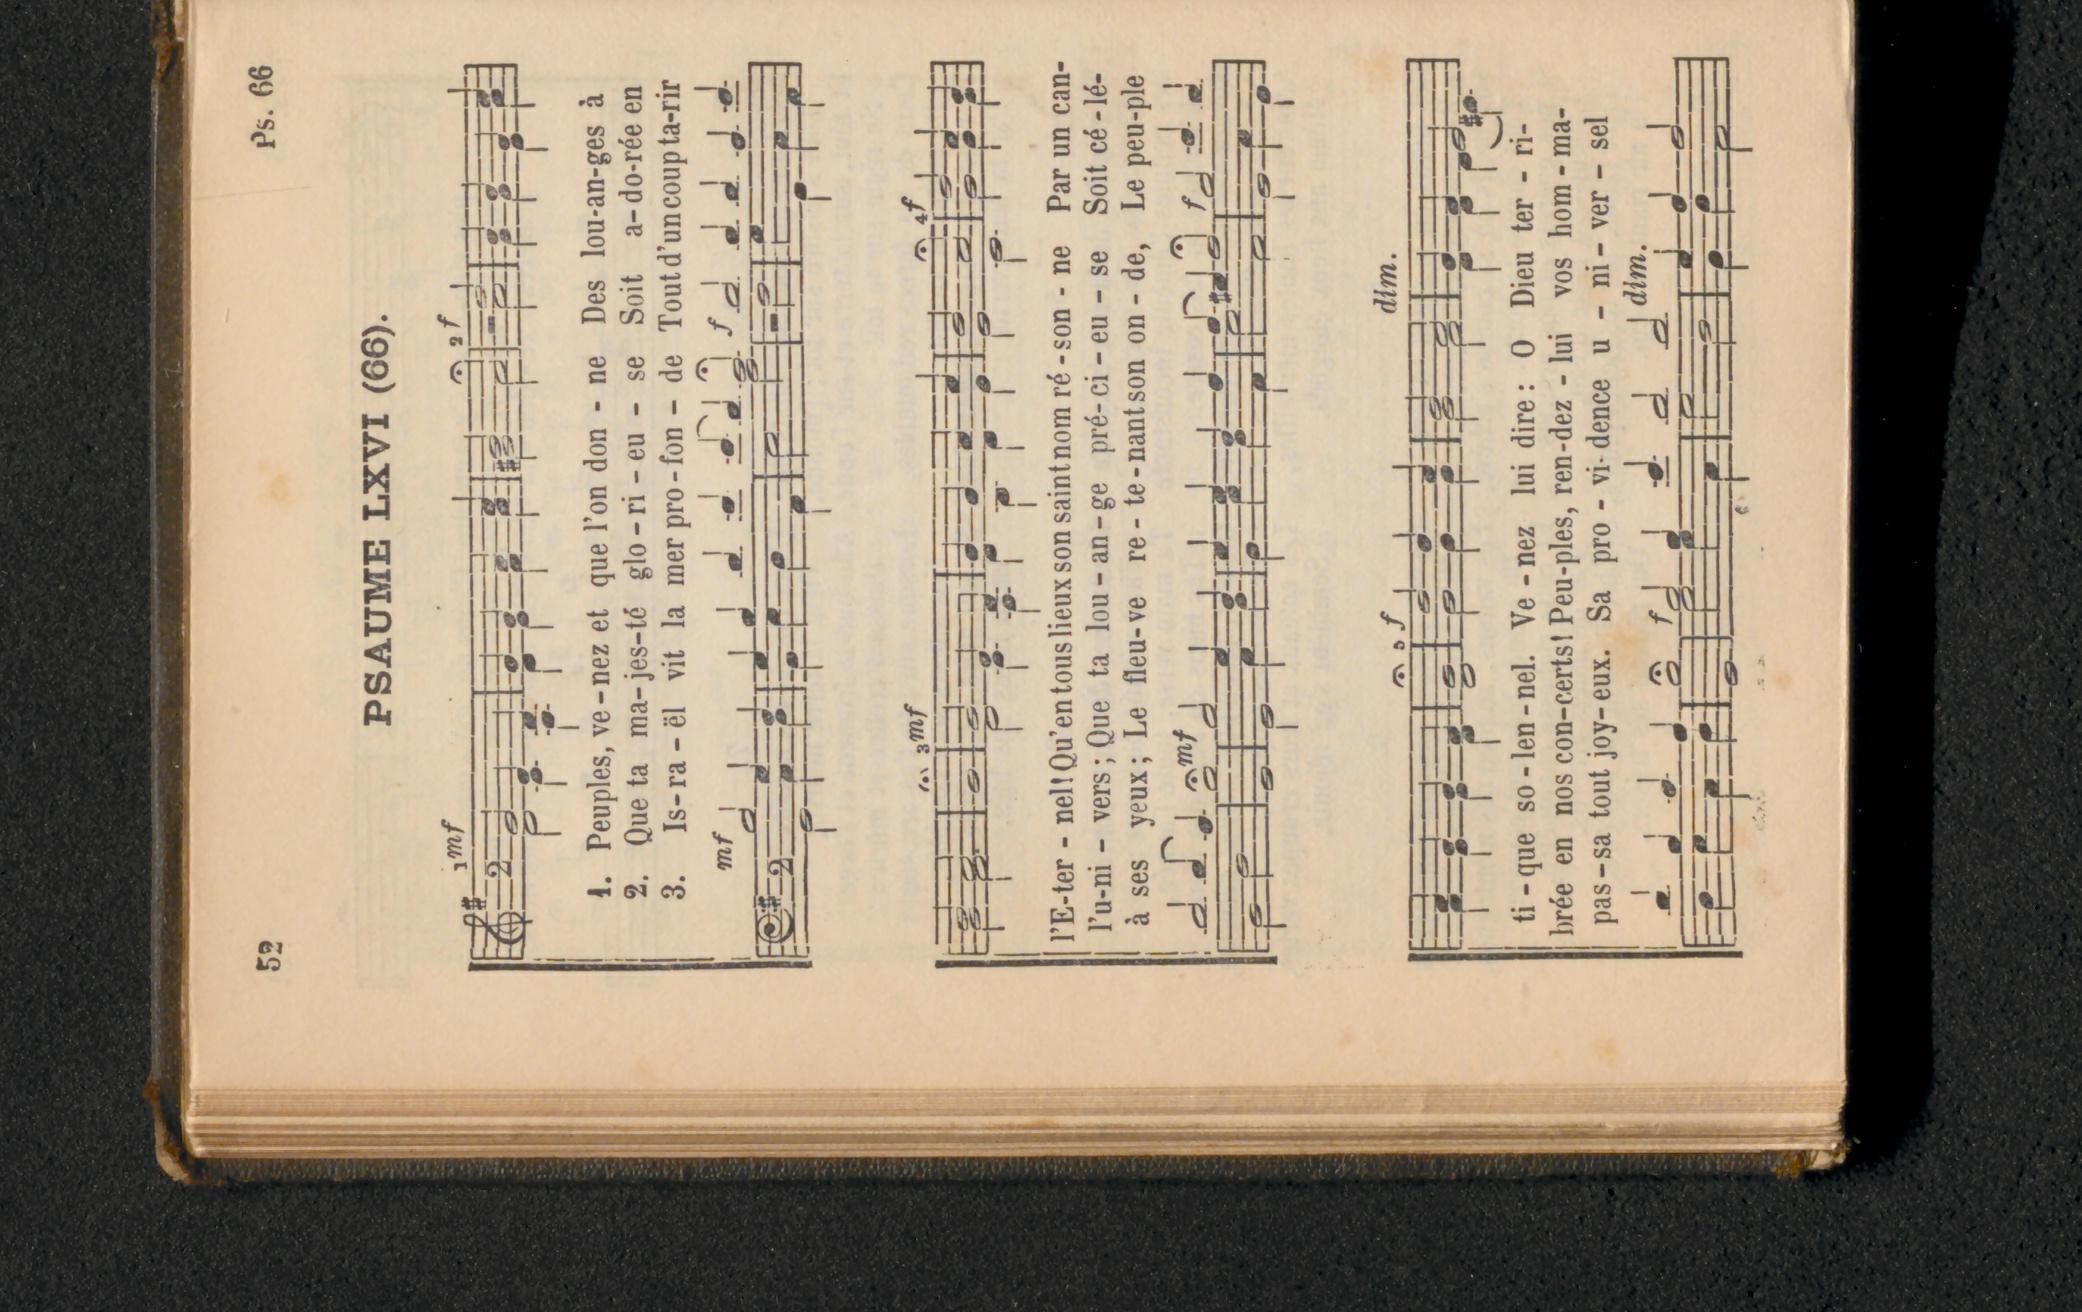 52
Ps. 66
PSAUME LXVI (66).
1 mf
2 f
1. Peuples, ve-nez et que l'on don - ne Des lou-an-ges à
2. Que ta ma-jes-té glo-ri-eu - se Soit a-do-rée en
3. Is-ra-ël vit la mer pro-fon - de Tout d'un coup ta-rir
mf
f
3 mf
4 f
l'E-ter - nel! Qu'en tous lieux son saint nom ré-son - ne Par un can-
l'u-ni - vers; Que ta lou-an-ge pré-ci-eu - se Soit cé-lé-
à ses yeux; Le fleu-ve re-te-nant son on - de, Le peu-ple
mf
f
5 f
dim.
ti-que so-len-nel. Ve-nez lui dire: O Dieu ter - ri-
brée en nos con-certs! Peu-ples, ren-dez-lui vos hom - ma-
pas-sa tout joy-eux. Sa pro-vi-dence u - ni - ver - sel
f
dim.